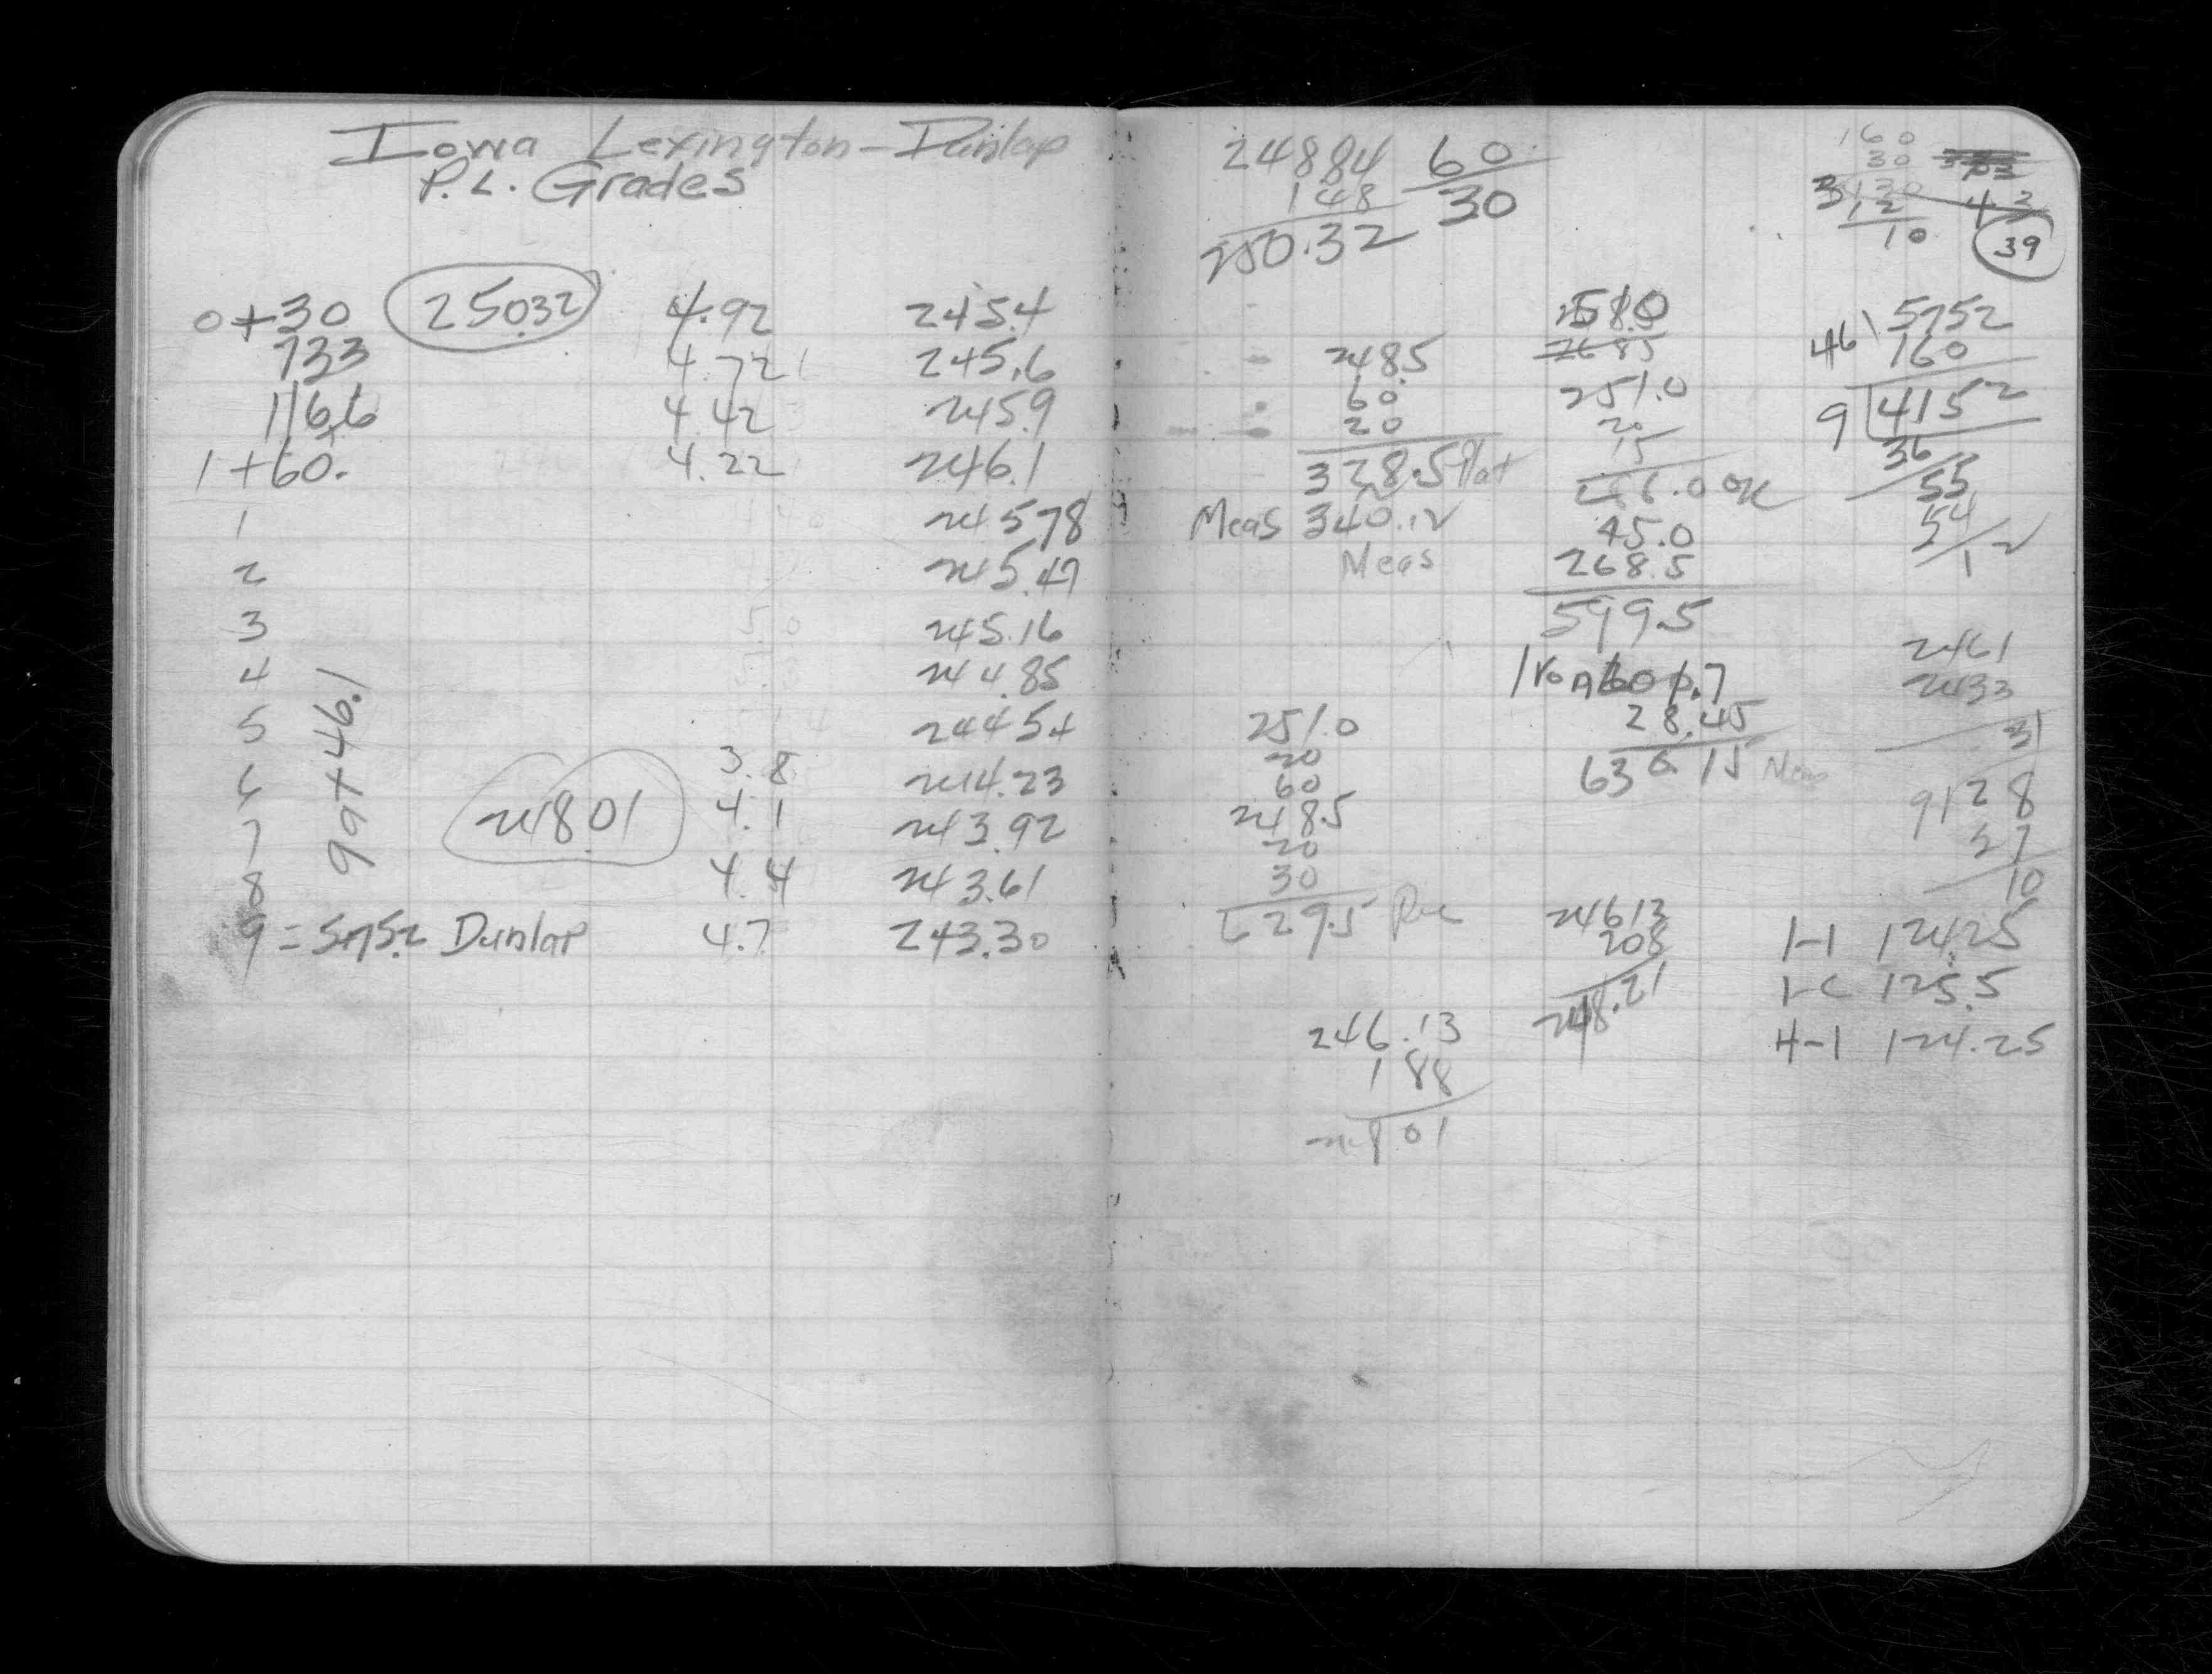 Iowa Lexington-Dunlap
P.L. Grades
0+30 250.32 4.92 245.4
733 4.72 245.6
116.6 4.42 245.9
1+60. 4.22 246.1
1 245.78
2 245.47
3 5.0 245.16
4 244.85
5 244.54
6 3.8 244.23
7 248.01 4.1 243.92
8 4.4 243.61
9 = 5+52 Dunlap 4.7 243.30
9 at 46.1
24884
148
250.32
60
30
160
30
3 130
12
10
43
39
248.5
60.
20
328.5 Plat
Meas 340.12
Meas
251.0
20
15
286.0 OK
45.0
268.5
599.5
Iron 600.7
28.45
636.15 Meas
5752
46 160
9 4152
36
55
54
12
2461
2433
31
9 28
27
10
251.0
20
60
248.5
20
30
629.5 Rec
246.13
208
248.21
246.13
188
248.01
1-1 124.25
1-C 125.5
4-1 124.25